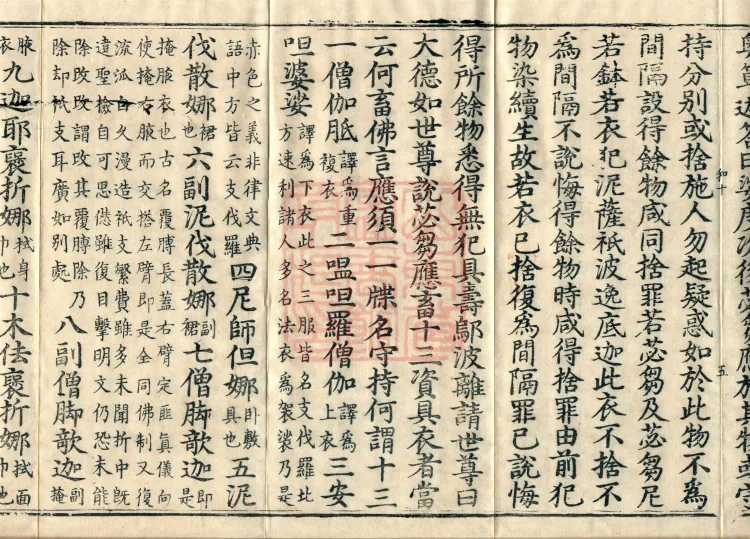 持分別或捨施人勿起疑惑如於此物不爲
間隔設得餘物咸同捨罪若苾芻及苾芻尼
若鉢若衣犯泥薩祇波逸底迦此衣不捨不
爲間隔不說悔得餘物時咸得捨罪由前犯
物染續生故若衣已捨復爲間隔罪已說悔
和十
五
得所餘物悉得無犯具壽鄔波離請世尊曰
大德如世尊說苾芻應畜十三資具衣者當
云何畜佛言應須一一牒名守持何謂十三
一僧伽胝譯爲重複衣二嗢呾羅僧伽譯爲上衣三安
呾婆娑譯爲下衣此之三服皆名支伐羅北方速利諸人多名法衣爲袈裟乃是
赤色之義非律文典語中方皆云支伐羅四尼師但娜卧敷具也五泥
伐散娜裙也六副泥伐散娜副裙七僧脚欹迦即是
掩腋衣也古名覆膊長蓋右臂定匪真儀向使掩右腋而交搭左臂即是全同佛制又復
流派自久漫造祇支繁費雖多未聞折中旣違聖檢自可思愆雖復目擊明文仍恐未能
除改改謂改其覆膊除乃除却祇支耳廣如別處八副僧脚欹迦副掩
腋衣九迦耶褒折娜拭身巾也十木佉褒折娜拭面巾也